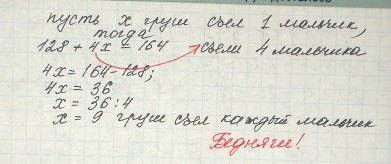 пусть х груш съел 1 мальчик,
тогда
128 + 4х = 164 съели 4 мальчика
4х = 164-128;
4х = 36
х = 36:4
х = 9 груш съел каждый мальчик
Бедняги!